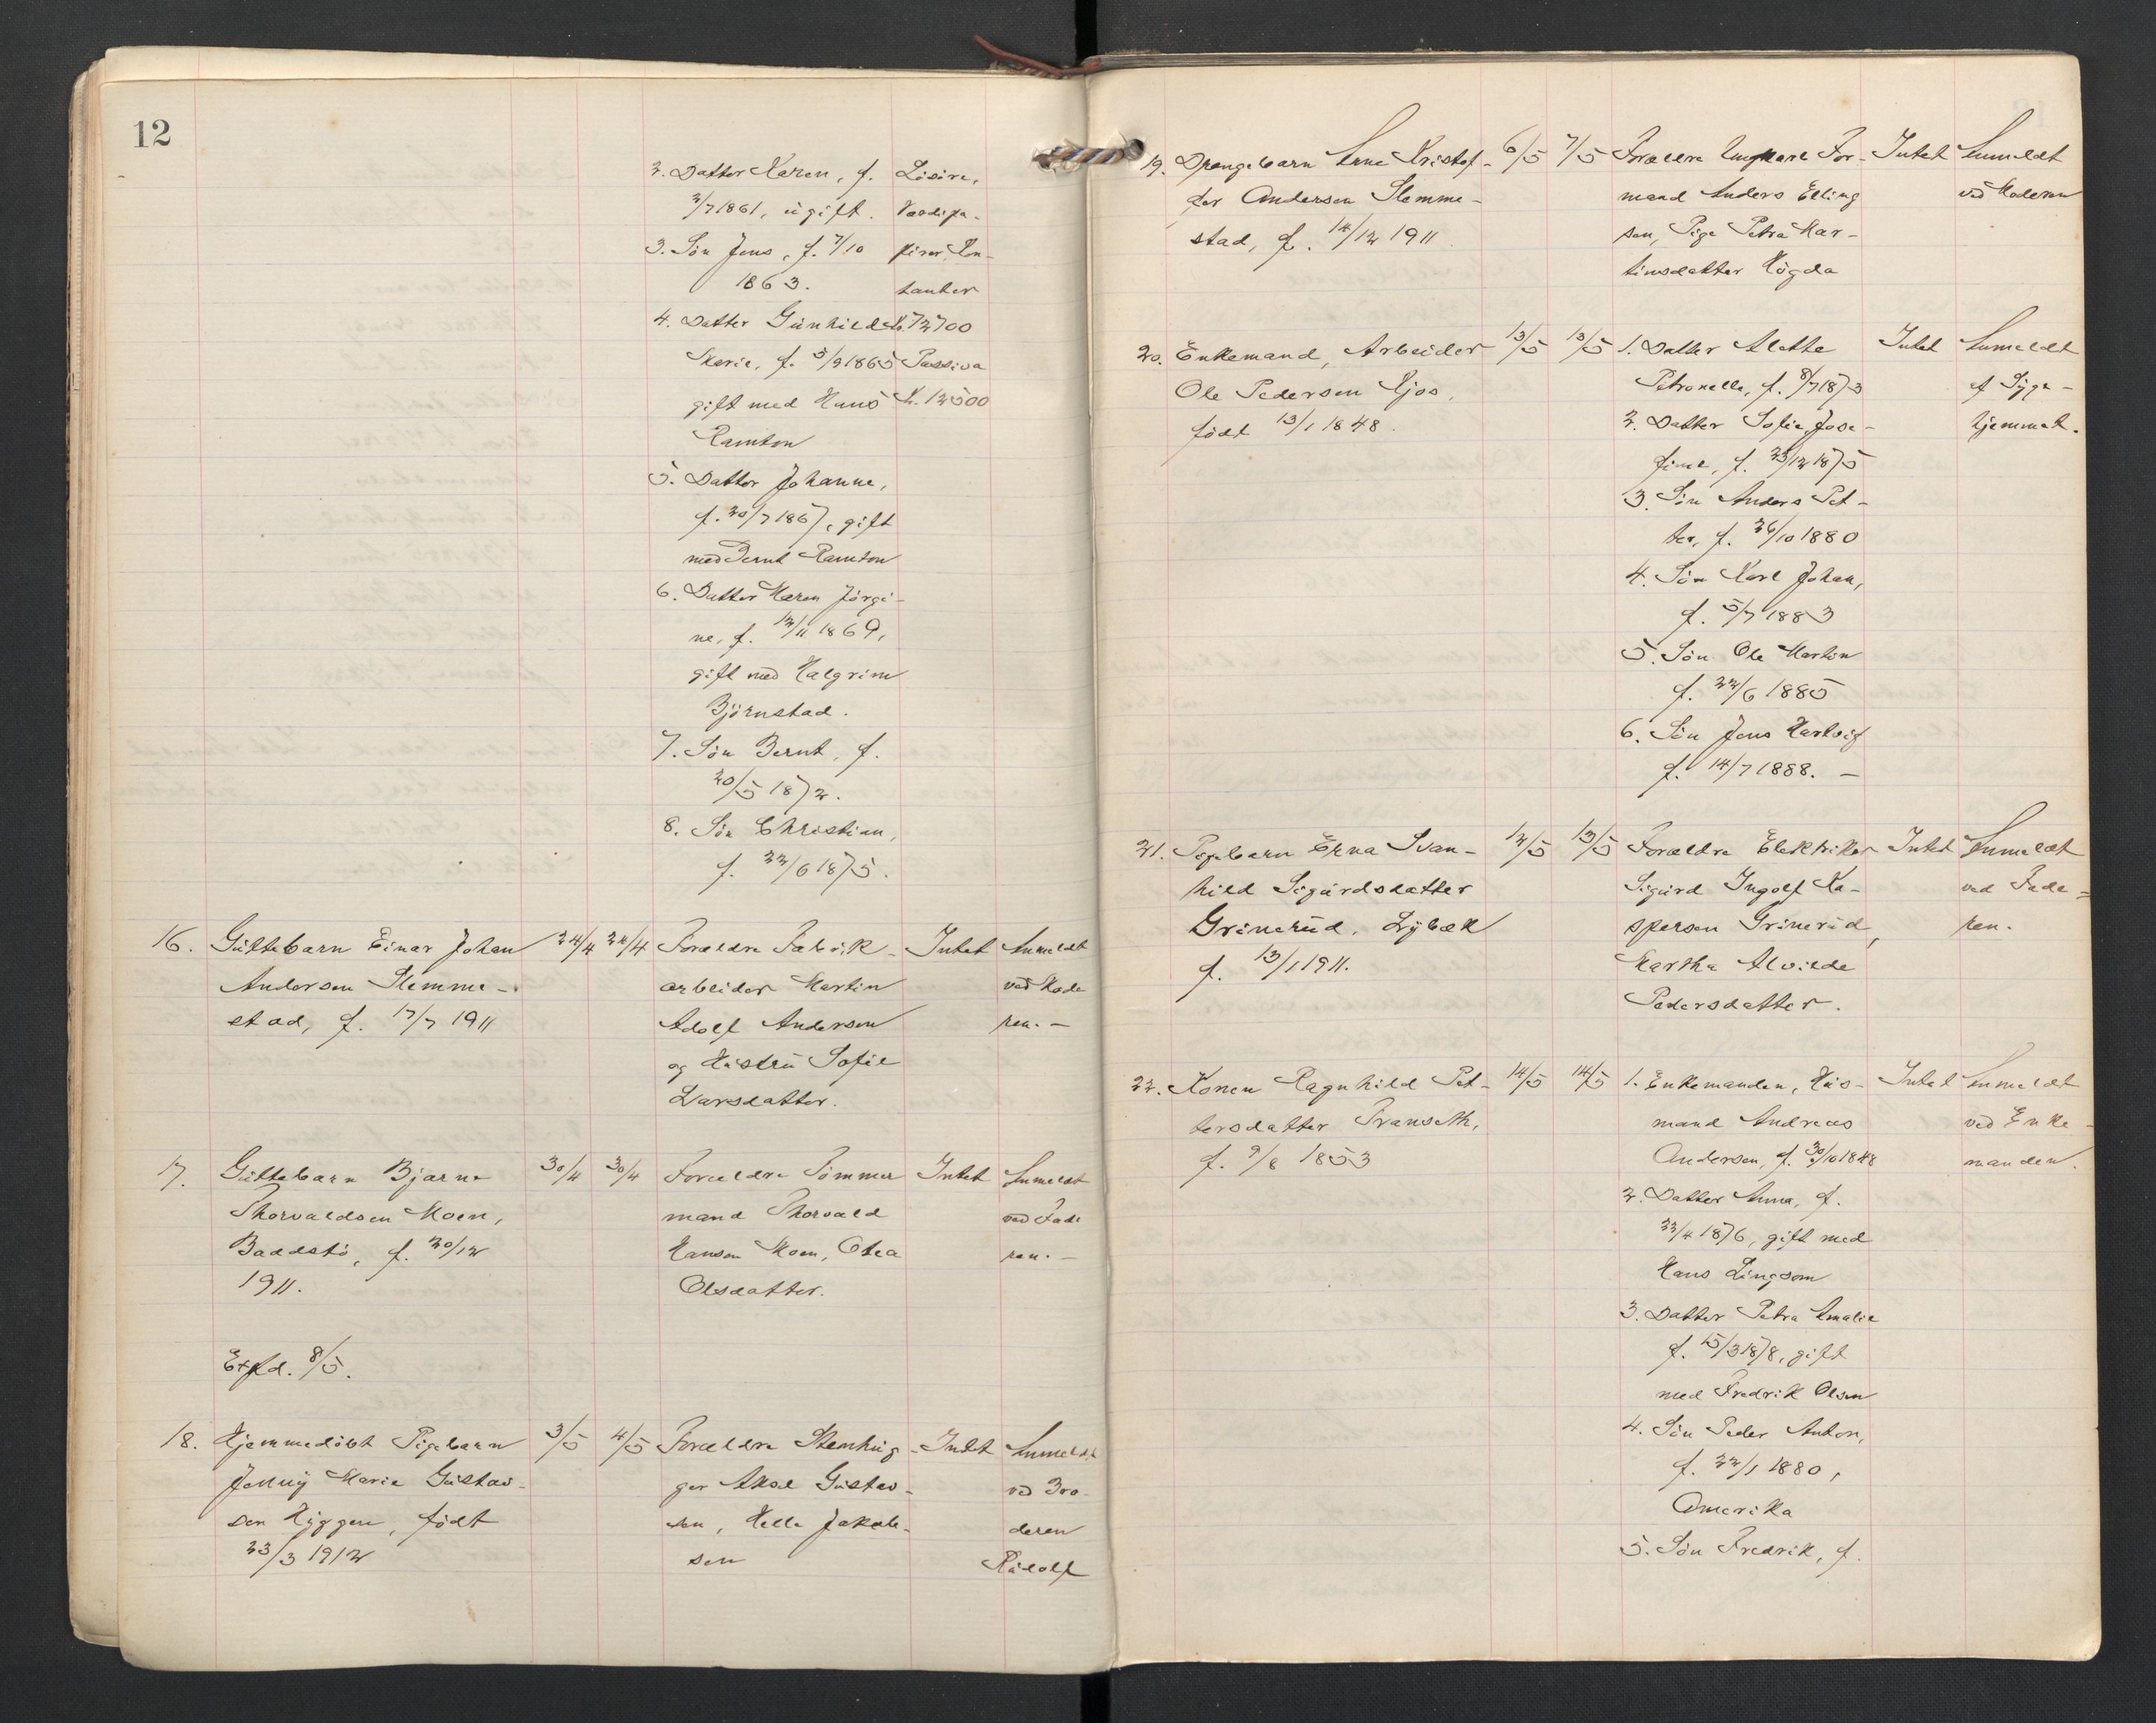 12
2. Datter Karen, f.
2/7 1861, ugift.
3. Søn Jens, f. 7/10
1863.
4. Datter Gunhilde
Marie, f. 5/9 1865
gift med Hans
Ramton
5. Datter Johanne,
f. 20/7 1867, gift
med Bernt Ramton
6. Datter Maren Jørgi-
ne, f. 12/11 1869,
gift med Halgrim
Bjørnstad.
7. Søn Bernt, f.
20/5 1872.
8. Søn Christian,
f. 22/6 1875.
Løsøre,
Værdipa-
pirer, Kon-
tanter
Kr. 72700
Passiva
Kr. 12500
16. Guttebarn Einar Johan
Andersen Slemme-
stad, f. 17/7 1911
24/4 24/4
Forældre Fabrik-
arbeider Martin
Adolf Andersen
og Hustru Sofie
Larsdatter.
Intet
Anmeldt
ved Mode
ren. -
17. Guttebarn Bjarne
Thorvaldsen Moen,
Baadstø, f. 20/12
1911.
30/4 30/4
Forældre Tømmer
mand Thorvald
Hansen Moen, Otea
Olsdatter.
Intet
Anmeldt
ved Fade
ren. -
Expd. 8/5.
18. Hjemmedøbt Pigebarn
Jenny Marie Gustav-
sen Hyggen, født
23/3 1912
3/5 4/5
Forældre Stenhug-
ger Aksel Gustav-
sen, Helle Jakob-
sen
Intet
Anmeldt
ved Bro-
deren
Rudolf
19. Drengebarn Arne Kristof-
fer Andersen Slemme-
stad, f. 14/12 1911
6/5 7/5
Forældre Ungkarl For-
mand Anders Elling
sen, Pige Petra Mar-
tinsdatter Høgda
Intet
Anmeldt
ved Moderen
20. Enkemand, Arbeider
Ole Pedersen Kjos,
født 13/1 1848.
13/5 13/5
1. Datter Alette
Petronelle, f. 8/7 1873
2. Datter Sofie Jose-
fine, f. 23/12 1875
3. Søn Anders Pet-
ter, f. 26/10 1880
4. Søn Karl Johan,
f. 5/7 1883
5. Søn Ole Martin
f. 22/6 1885
6. Søn Jens Hartvig
f. 14/7 1888. -
Intet
Anmeldt
af Syge-
hjemmet.
21. Pigebarn Erna Svan-
hild Sigurdsdatter
Grinerud, Lybæk
f. 13/1 1911.
12/5 13/5
Forældre Elektriker
Sigurd Ingolf Ka-
spersen Grinerud,
Martha Alvilde
Pedersdatter.
Intet
Anmeldt
ved Fade-
ren.
22. Konen Ragnhild Pet-
tersdatter Franseth,
f. 9/8 1853
14/5 14/5
1. Enkemanden, Hus-
mand Andreas
Andersen, f. 30/10 1848
2. Datter Anna, f.
23/4 1876, gift med
Hans Lingsom
3. Datter Petra Amalie
f. 15/3 1878, gift
med Fredrik Olsen
4. Søn Peder Anton,
f. 22/1 1880,
Amerika
5. Søn Fredrik, f.
Intet
Anmeldt
ved Enke-
manden.